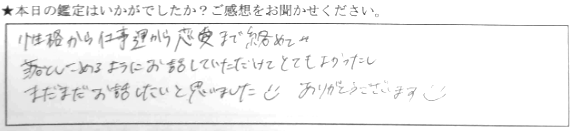 ★本日の鑑定はいかがでしたか?ご感想をお聞かせください。
性格から仕事運から恋愛まで絡めて
落としこめるようにお話していただけてとてもよかったし
まだまだお話したいと思いました☺ ありがとうございます☺